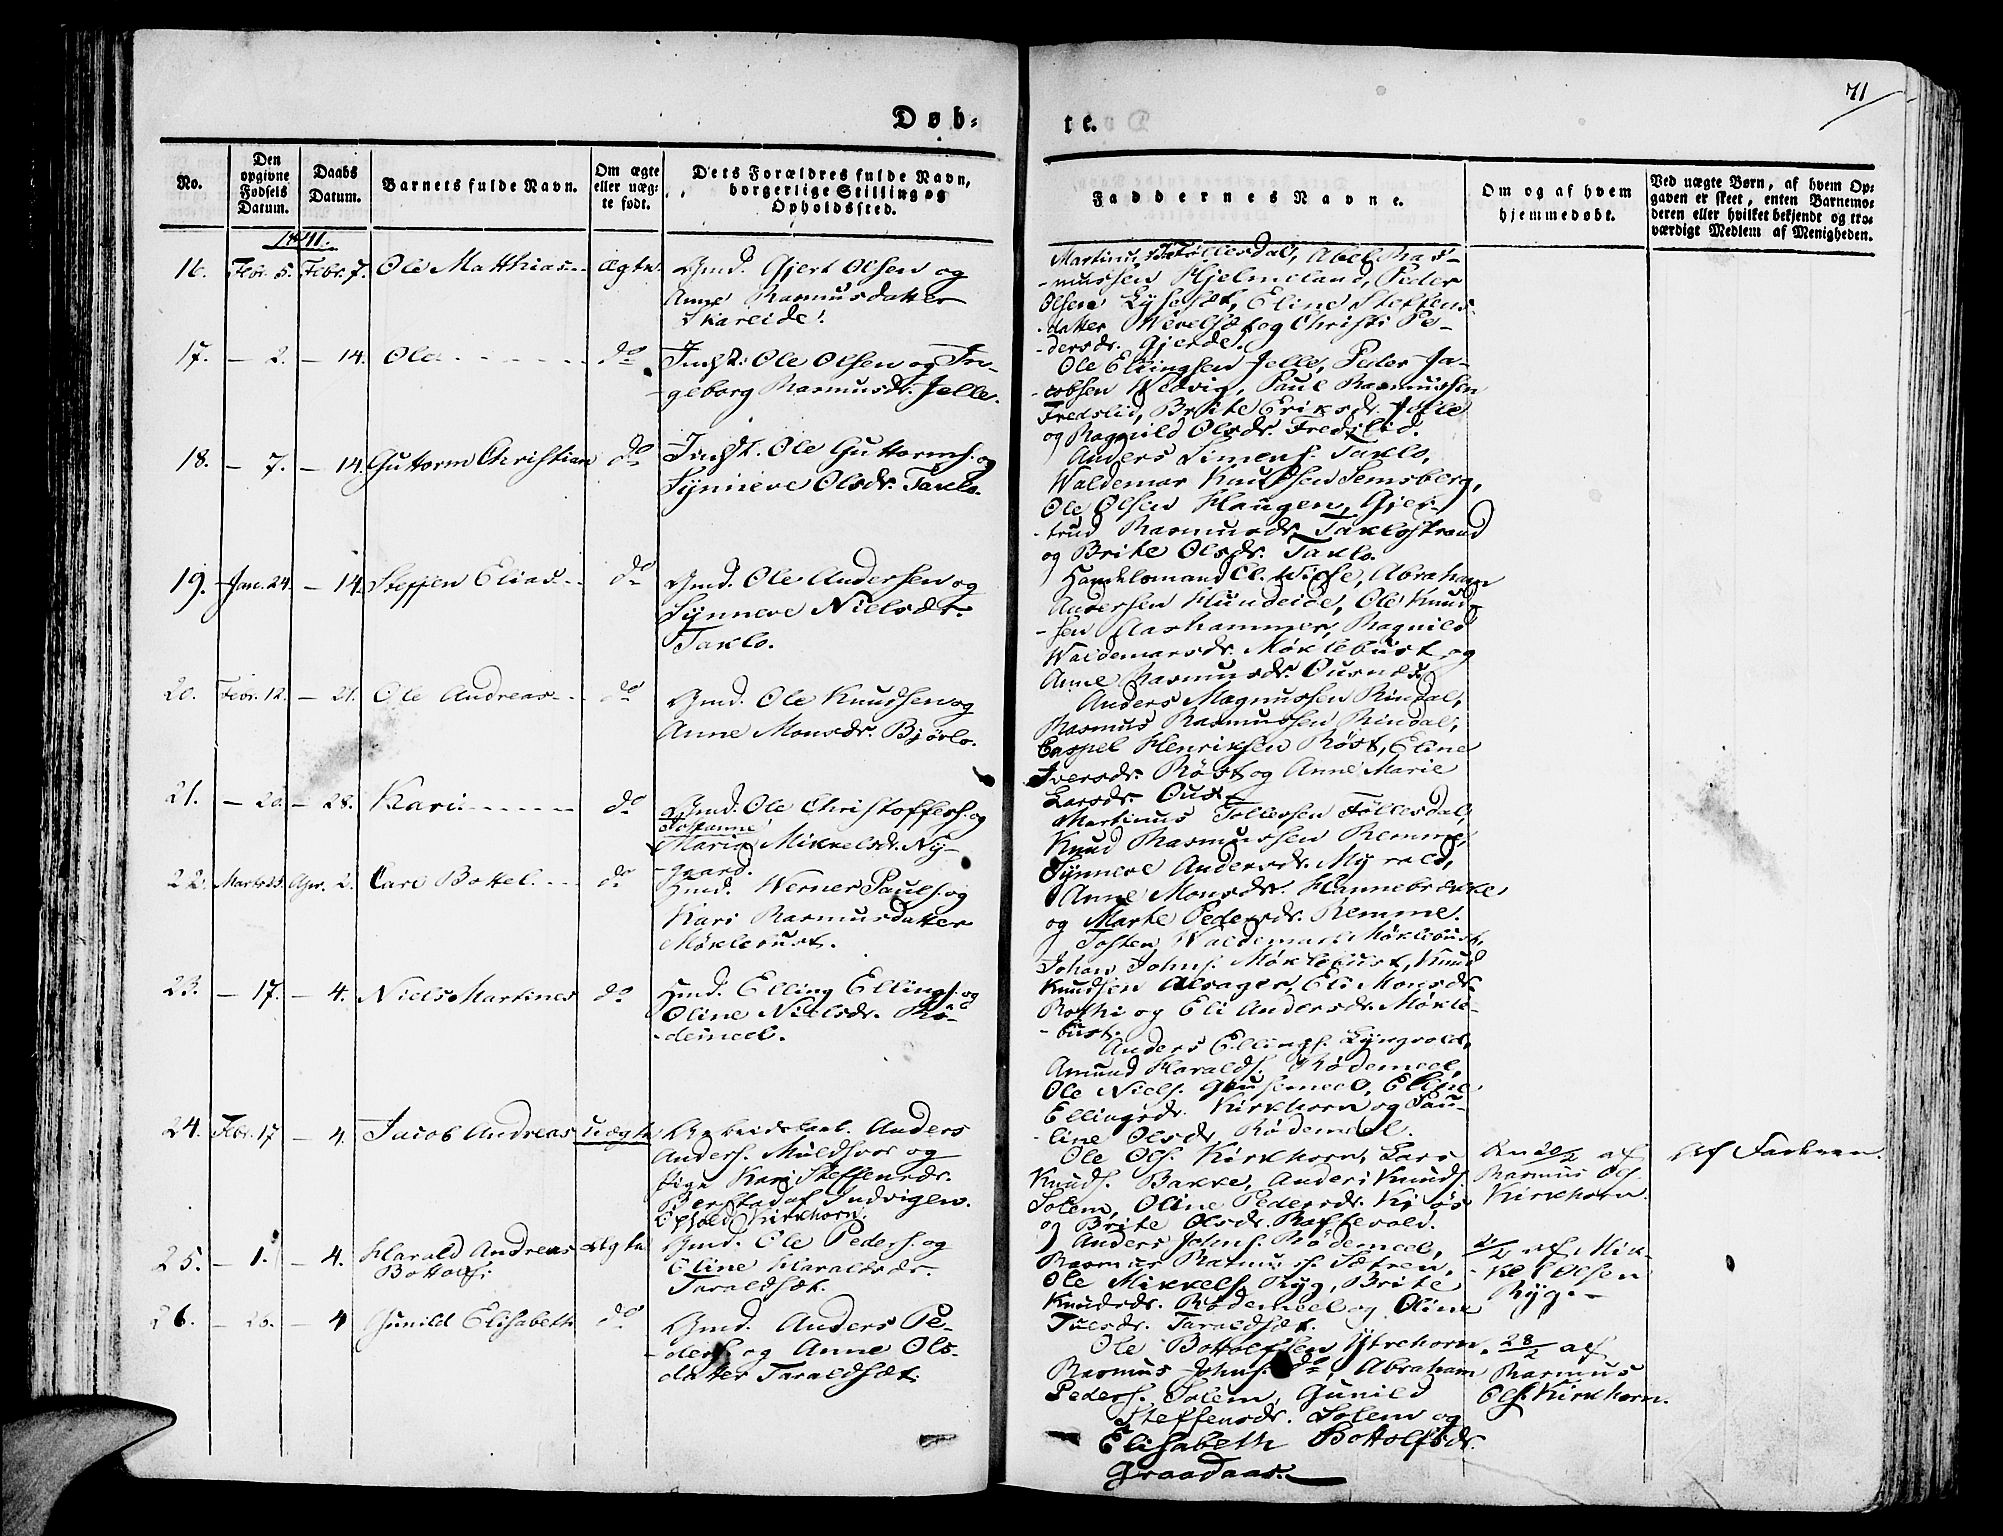 71
Døb-
te.
No.
Den
opgivne
Fødsels
Datum.
Daabs
Datum.
Barnets fulde Navn.
Om ægte
eller uæg-
te født.
Dets Forældres fulde Navn,
borgerlige Stilling og
Opholdssted.
Faddernes Navne.
Om og af hvem
hjemmedøbt.
Ved uægte Børn, af hvem Op-
gaven er skeet, enten Barnemo-
deren eller hvilket bekjendt og tro-
værdigt Medlem af Menigheden.
1841.
16. Febr. 5. Febr. 7. Ole Matthias ægte. Gmd. Gjert Olsen og
Anne Rasmusdatter
Skareide.
Martinus Føllesdal, Abel Ras-
-mussen Hjelmeland, Peder
Olsen Lysesæt, Eline Steffens-
-datter Wevelsæt og Christi Pe-
-dersdr. Gjerde.
17. - 2. - 14. Ole do Indst: Ole Olsen og In-
-geborg Rasmusdr. Jelle.
Ole Ellingsen Jelle, Peder Ja-
-cobsen Wedvig, Paul Rasmussen
Fredslid, Brite Eriksdr. Jelle
og Ragnild Olsdr. Fredslid.
18. - 7. - 14. Guttorm Christian do Indst. Ole Guttorms. og
Synneve Olsdr. Taklo.
Anders Simens. Taklo,
Waldemar Knudsen Semsberg,
Ole Olsen Haugen, Gjer-
-trud Rasmusdr. Taklostrand
og Brite Olsdr. Taklo.
19. Jan. 24. - 14. Steffen Elias do Gmd. Ole Andersen og
Synneve Nielsdr.
Taklo.
Handelsmand Cl. Wiese, Abraham
Andersen Hundeide, Ole Knud-
-sen Aarhammer, Ragnild
Waldemarsdr. Møklebust og
Anne Rasmusdr. Ousnes.
20. Febr. 12. - 21. Ole Andreas do Gmd. Ole Knudsen og
Anne Monsdr. Bjørlo.
Anders Magnussen Rindal,
Rasmus Rasmussen Rindal,
Caspel Henriksen Røst, Eline
Iversdr. Røst og Anne Marie
Larsdr. Ous
21. - 20. - 28. Kari do Gmd. Ole Christoffers. og
Johanne
Maria Mikkelsdr. Ny-
-gaard.
Martinus Tollersen Føllesdal,
Knud Rasmussen Remme,
Synneve Andersdr. Myrold,
Anne Monsdr. Hannebrekke,
og Marte Pedersdr. Remme.
22. Marts 25. Apr. 2. Carl Bottel do Gmd. Werner Pauls. og
Kari Rasmusdatter
Møklebust.
Tosten Waldemars. Møklebust,
Johan Johns. Møklebust, Knud
Knudsen Alsager, Eli Monsdr.
Rotki og Eli Andersdr. Møkle-
-bust.
23. - 17. - 4. Niels Martines do Hmd. Elling Ellings. og
Oline Nielsdr. Rø-
-demeel.
Anders Ellings. Lyngvold,
Amund Haralds. Rødemeel,
Ole Niels. Grusemeel, Eline
Ellingsdr. Kirkhorn og Pau-
-line Olsdr. Rødemeel.
24. Febr. 17 - 4. Jacob Andreas uægte Arbeidskarl. Anders
Anders. Muldsvor og
Pige Kari Steffensdr.
Berstad af Indvigen.
Ophold Kirkhorn.
Ole Ols. Kirkhorn, Lars
Knuds. Bakke, Anders Knuds.
Solem, Oline Pedersdr. Kjøs
og Brite Olsdr. Raftevold.
Den 20/2 af
Rasmus Ols.
Kirkhorn.
Af Faderen.
25. - 1. - 4. Harald Andreas ægte
Bottolf.
Gmd. Ole Peders. og
Oline Haraldsdr.
Taraldsæt.
Anders Johns. Rødemeel,
Rasmus Rasmuss. Sætren,
Ole Mikkels. Ryg, Brite
Knudsdr. Rødemeel og Oline
Tuesdr. Taraldsæt.
2/2 af Mik-
-kel Olsen
Ryg.
26. - 26. - 4 Gunild Elisabeth do Gmd. Anders Pe-
-ders. og Anne Ols-
datter Taraldsæt.
Ole Bottolfsen Ytrehorn,
Rasmus Johns. do, Abraham
Peders. Solem, Gunild
Steffensdr. Solem og
Elisabeth Bottolfsdr.
Graadaas.
28/2 af
Rasmus
Ols. Kirkhorn.